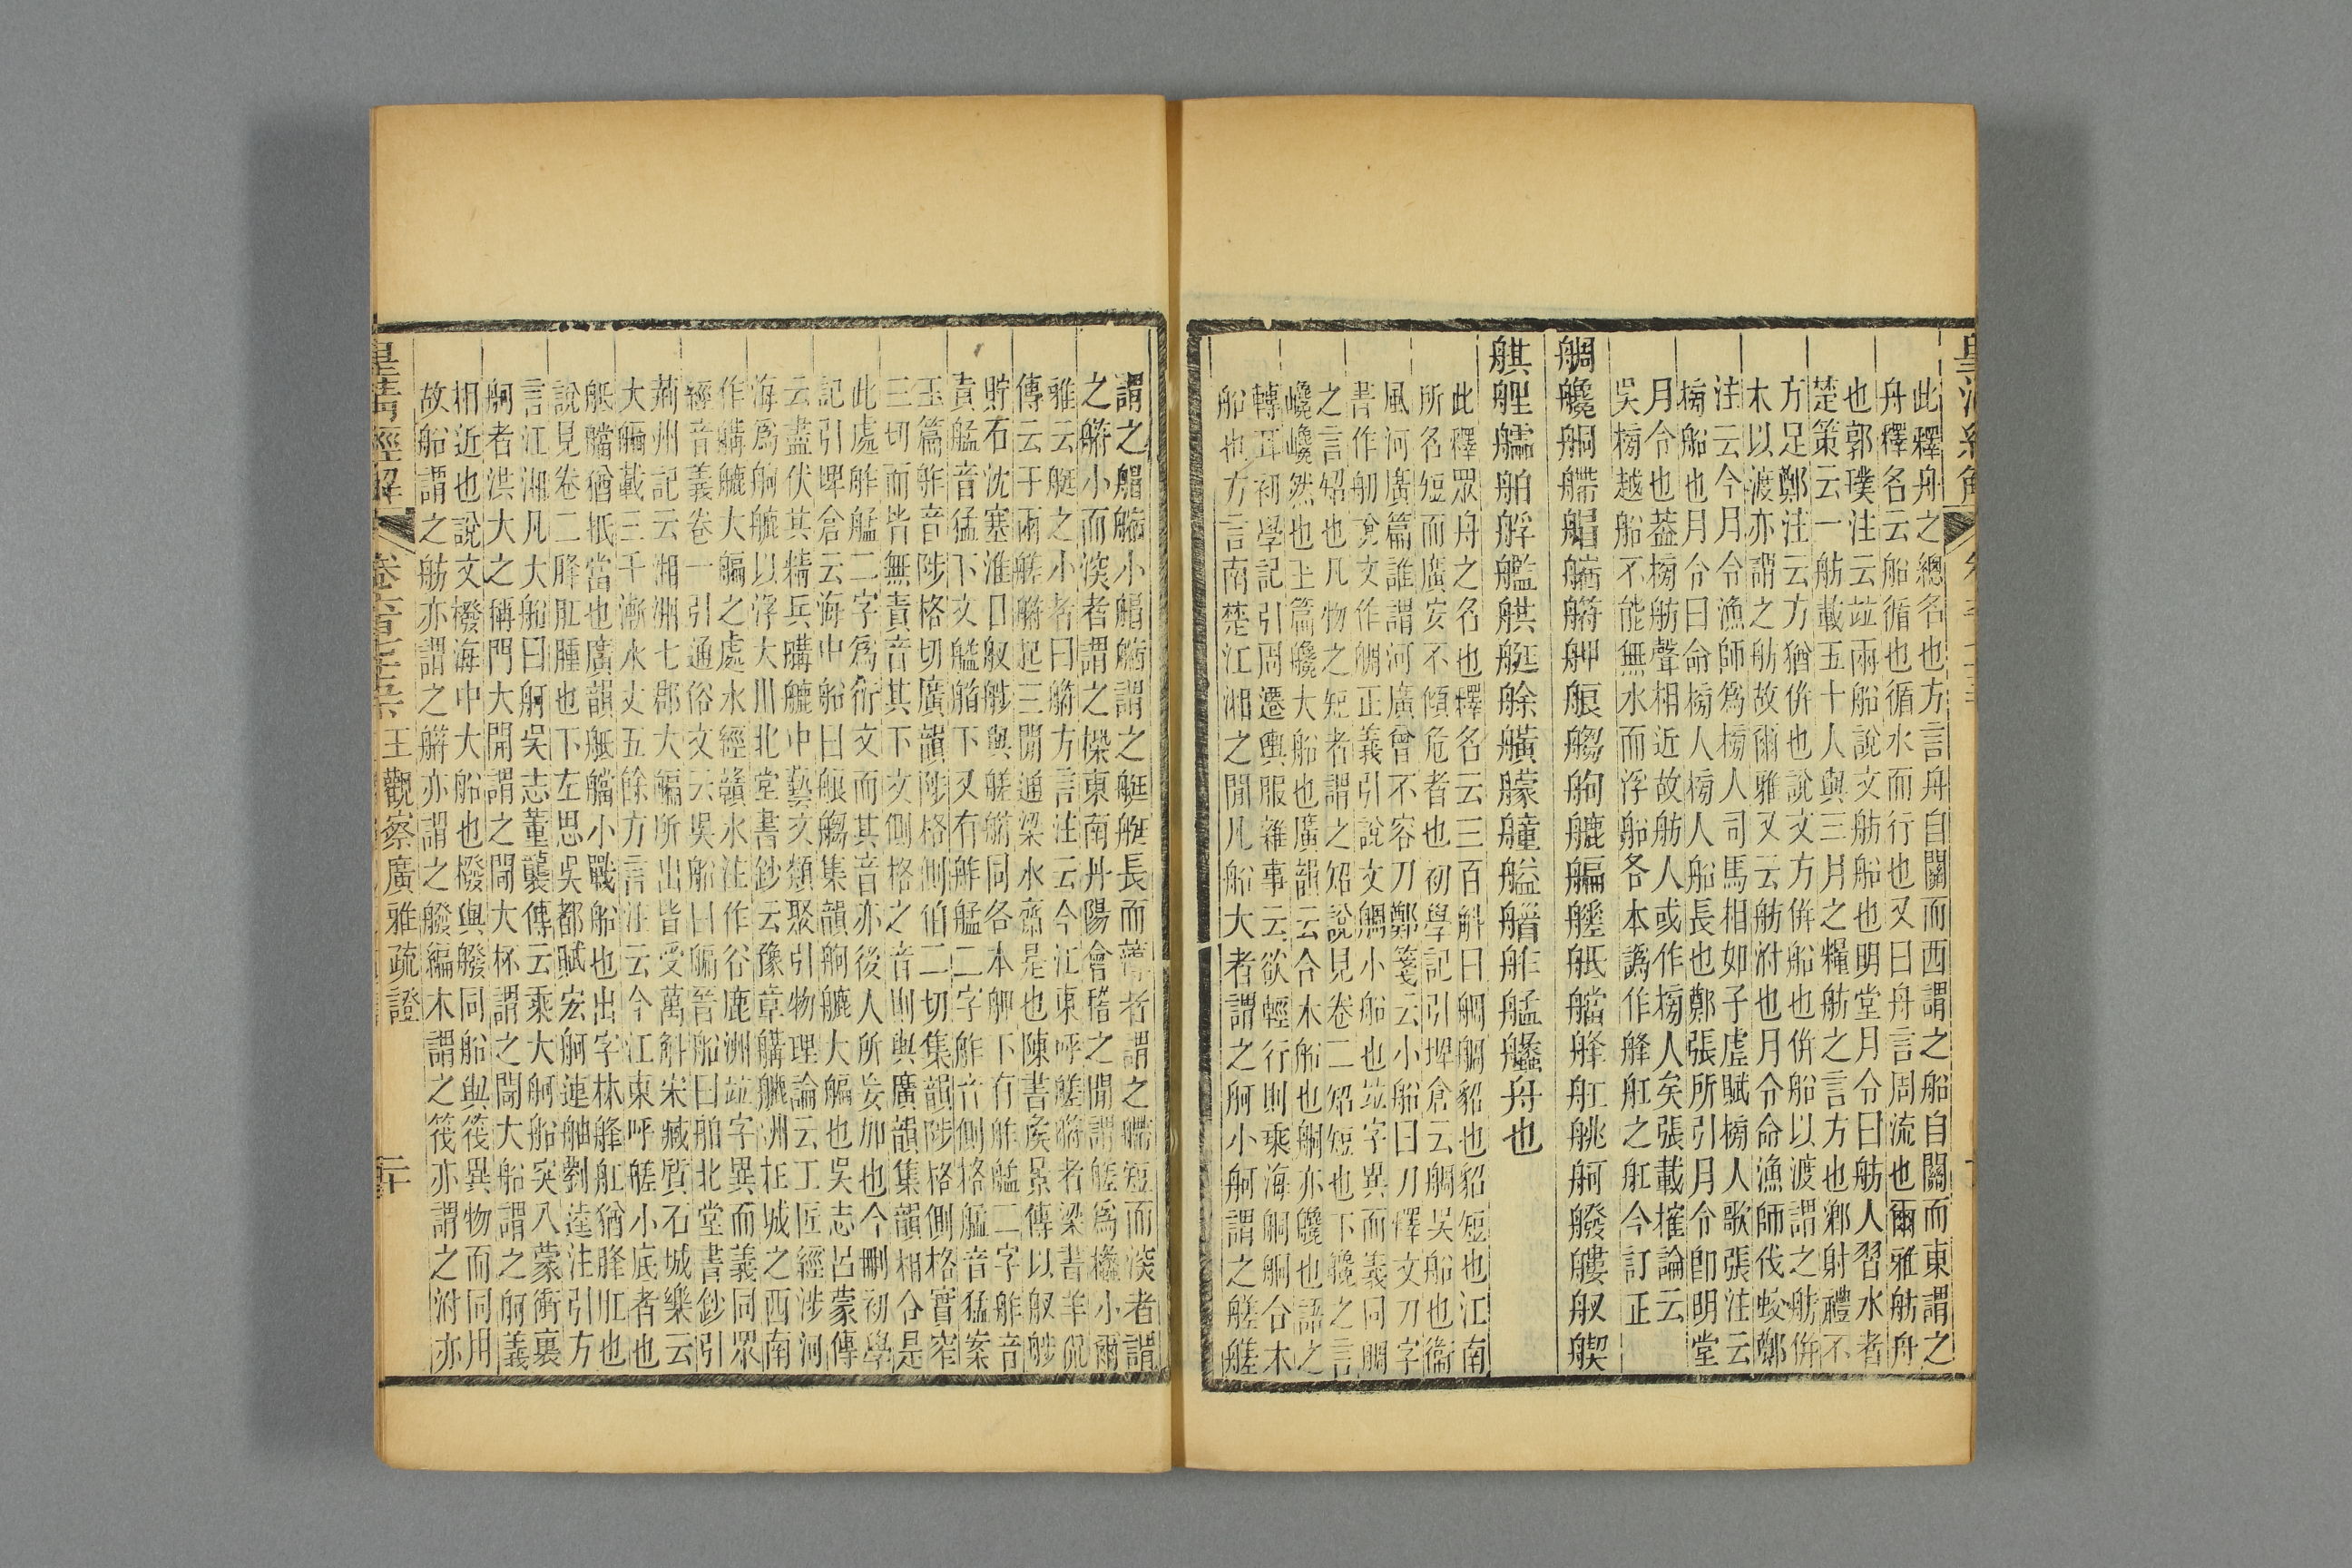 此釋舟之總名也方言舟自關而西謂之船自關而東謂之
舟釋名云船循也循水而行也又曰舟言周流也爾雅舫舟
也郭璞注云竝兩船說文舫船也明堂月令曰舫人習水者
楚策云一舫載五十人與三月之糧舫之言方也鄉射禮不
方足鄭注云方猶併也說文方併船也併船以渡謂之舫併
木以渡亦謂之舫故爾雅又云舫泭也月令命漁師伐蛟鄭
注云今月令漁師爲榜人司馬相如子虛賦榜人歌張注云
榜船也月令曰命榜人榜人船長也鄭張所引月令卽明堂
月令也葢榜舫聲相近故舫人或作榜人矣張載榷論云
吳榜越船不能無水而浮船各本譌作舽舡之舡今訂正
舠艬舸䑰艒䑿艀舺艆䑼䑦艍艑艖舧艡舽舡䑬舸䑺艛舣䒁
艃艜舶艀艦艇艅艎艨艟艗䑹舴艋䑶舟也
此釋眾舟之名也釋名云三百斛曰䑠䑠貂也貂短也江南
所名短而廣安不傾危者也初學記引埤倉云䑠吳船也衞
風河廣篇誰謂河廣曾不容刀鄭箋云小船曰刀釋文刀字
書作舠說文作䑠正義引說文䑠小船也竝字異而義同䑠
之言㲈也凡物之短者謂之㲈說見卷二㲈短也下艬之言
巉巉然也玉篇艬大船也廣韻云合木船也䑪亦艬也語之
轉耳初學記引周遷輿服雜事云欲輕行則乘海䑪䑪合木
船也方言南楚江湘之閒凡船大者謂之舸小舸謂之艖艖
謂之艒䑿小艒䑿謂之艇艇長而薄者謂之艜短而深者謂
之䑰小而深者謂之樑東南丹陽會稽之閒謂艖爲欚小爾
雅云艇之小者曰䑰方言注云今江東呼艖䑰者梁書羊侃
傳云于兩艖䑰起三閒通梁水齋是也陳書侯景傳以舣䑡
貯石沈塞淮口舣䑡與艖䑰同各本舺下有舴艋二字舴音
責艋音猛下文艋䑹下又有舴艋二字舴音側格艋音猛案
玉篇舴音陟格切廣韻陟格側伯二切集韻陟格側格實窄
三切而皆無責音其下文側格之音則與廣韻集韻相合是
此處舴艋二字爲衍文而其音亦後人所妄加也今刪初學
記引埤倉云海中船曰艆䑼集韻舸艍大艑也吳志呂蒙傳
云盡伏其精兵䑽艫中藝文類聚引物理論云工匠經涉河
海爲舸艫以浮大川北堂書鈔云豫章䑽艫洲在城之西南
作䑽艫大艑之處水經贛水注作谷鹿洲竝字異而義同眾
經音義卷一引通俗文云吳船曰艑晉船曰舶北堂書鈔引
荊州記云湘洲七郡大艑所出皆受萬斛宋臧質石城樂云
大艑載三千漸水丈五餘方言注云今江東呼艖小底者也
舧艡猶抵當也廣韻舧艡小戰船也出字林舽舡猶胮肛也
說見卷二胮肛腫也下左思吳都賦宏舸連舳劉逵注引方
言江湘凡大船曰舸吳志董襲傳云乘大舸船突入蒙衝裏
舸者洪大之稱門大開謂之閜大杯謂之閜大船謂之舸義
相近也說文橃海中大船也橃與䑺同船與筏異物而同用
故船謂之舫亦謂之䑰亦謂之䑺編木謂之筏亦謂之泭亦
皇清經解 卷六百七十五 王觀察廣雅疏證 二十